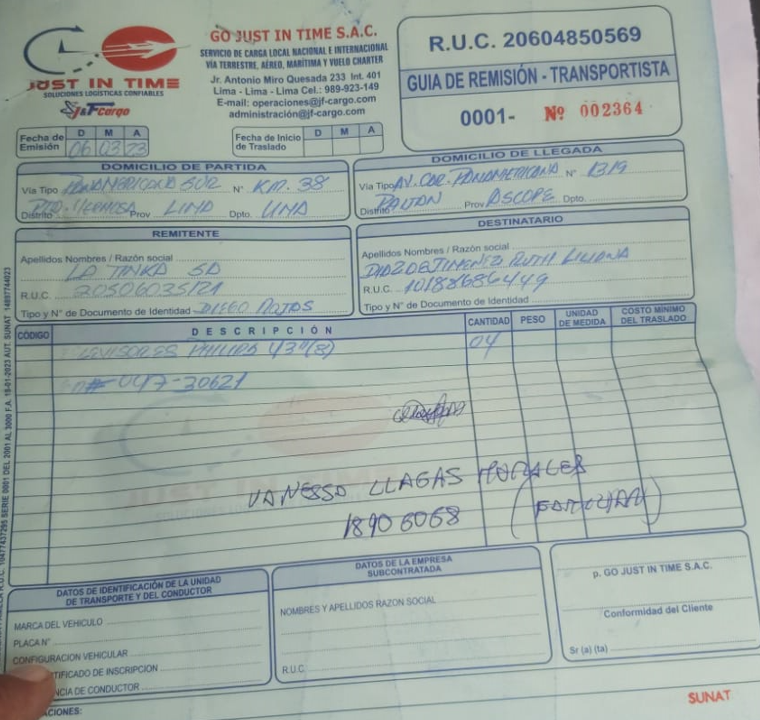 JUST IN TIME
SOLUCIONES LOGÍSTICAS CONFIABLES
J&F Cargo
GO JUST IN TIME S.A.C.
SERVICIO DE CARGA LOCAL NACIONAL E INTERNACIONAL
VÍA TERRESTRE, AÉREO, MARÍTIMA Y VUELO CHARTER
Jr. Antonio Miro Quesada 233 Int. 401
Lima - Lima - Lima Cel.: 989-923-149
E-mail: operaciones@jf-cargo.com
administración@jf-cargo.com
R.U.C. 20604850569
GUIA DE REMISIÓN - TRANSPORTISTA
0001- Nº 002364
Fecha de Emisión D M A
06 03 23
Fecha de Inicio de Traslado D M A
DOMICILIO DE PARTIDA
Vía Tipo PANAMERICANA SUR N° KM. 38
Distrito PTO. HERMOSA Prov LIMA Dpto. LIMA
DOMICILIO DE LLEGADA
Vía Tipo AV. CAR. PANAMERICANA N° 1319
Distrito PAIJAN Prov ASCOPE Dpto.
REMITENTE
Apellidos Nombres / Razón social
LA TINKA SA
R.U.C. 20506035121
Tipo y N° de Documento de Identidad DIEGO ROJAS
DESTINATARIO
Apellidos Nombres / Razón social
DIAZ DE JIMENEZ RUTH LILIANA
R.U.C. 10188686449
Tipo y N° de Documento de Identidad
CÓDIGO DESCRIPCIÓN CANTIDAD PESO UNIDAD DE MEDIDA COSTO MÍNIMO DEL TRASLADO
TELEVISORES PHILIPS 43" (S) 04
047-30621
VANESSA LLAGAS MORALES
18906068
JUST IN TIME
DATOS DE IDENTIFICACIÓN DE LA UNIDAD
DE TRANSPORTE Y DEL CONDUCTOR
MARCA DEL VEHICULO
PLACA N°
CONFIGURACION VEHICULAR
TIFICADO DE INSCRIPCION
NCIA DE CONDUCTOR
DATOS DE LA EMPRESA
SUBCONTRATADA
NOMBRES Y APELLIDOS RAZON SOCIAL
R.U.C.
p. GO JUST IN TIME S.A.C.
Conformidad del Cliente
Sr (a) (ta)
CIONES:
SUNAT